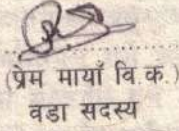 (प्रेम मायाँ वि.क.)
वडा सदस्य